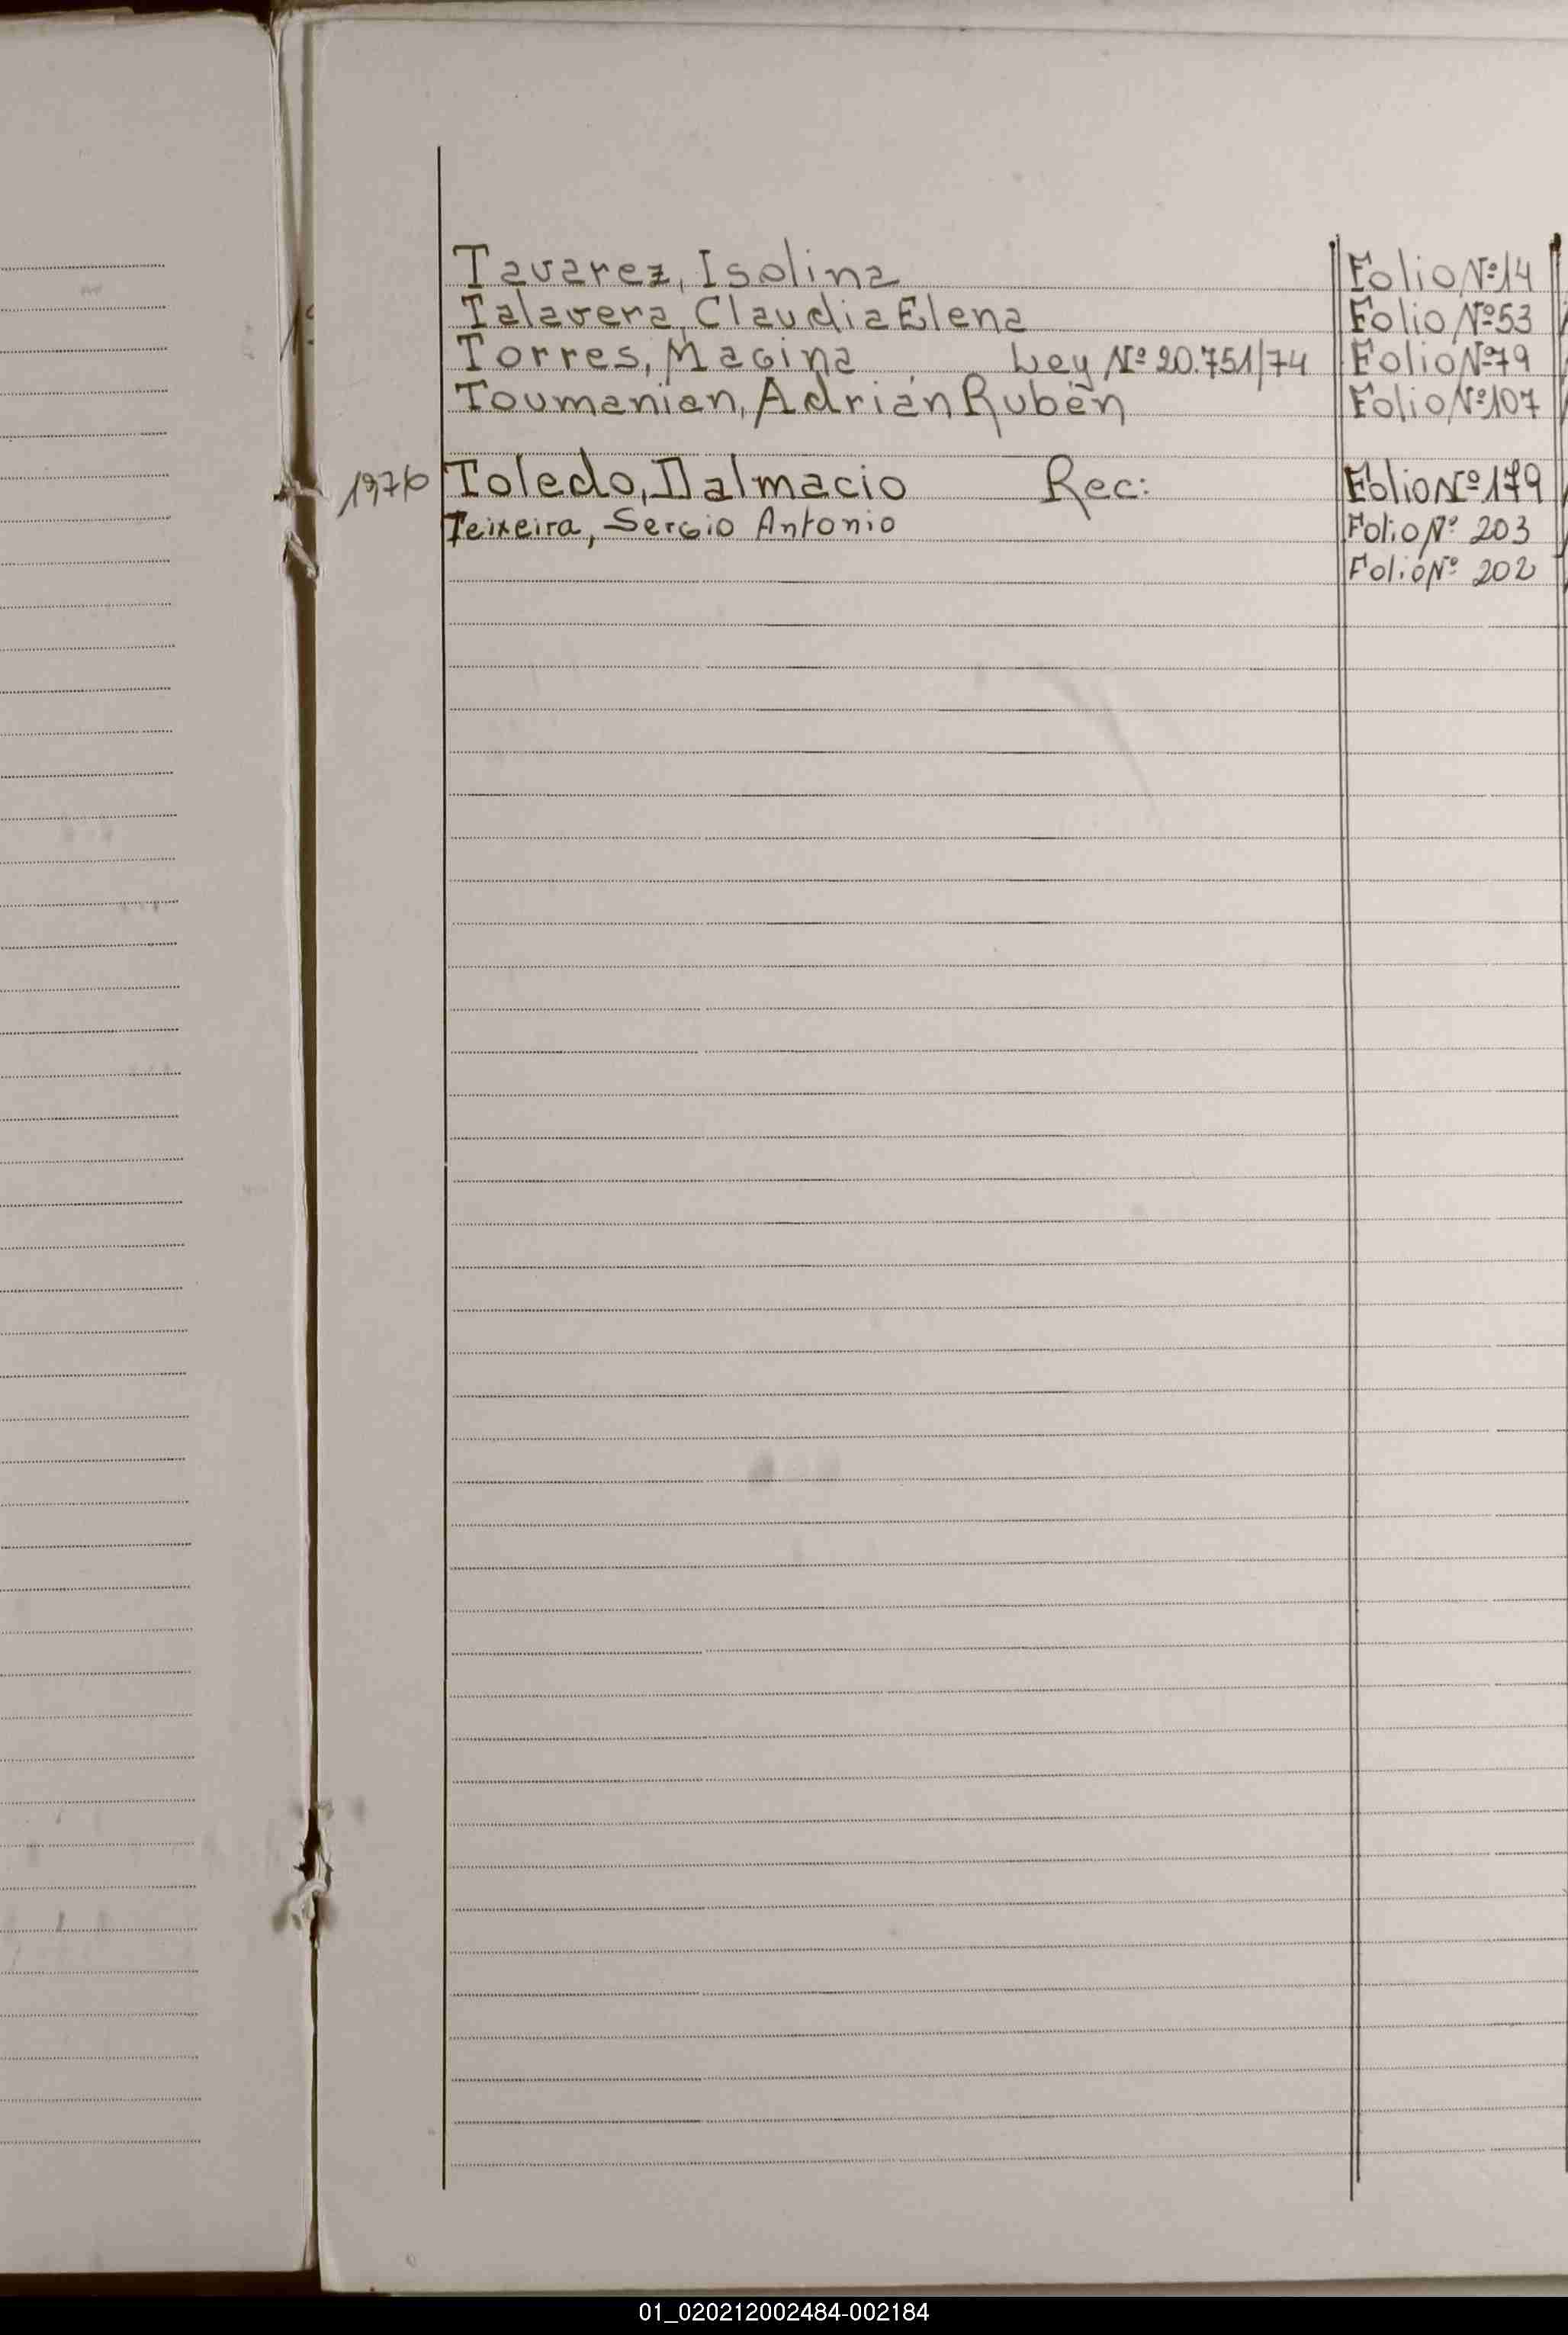 Tavarez, Isolina Folio Nº 14
Talavera, Claudia Elena Folio Nº 53
Torres, Magina Ley Nº 20.751/74 Folio Nº 79
Toumanian, Adrián Rubén Folio Nº 107
1976 Toledo, Dalmacio Rec: Folio Nº 179
Teixeira, Sergio Antonio Folio Nº 203
Folio Nº 202
01_020212002484-002184